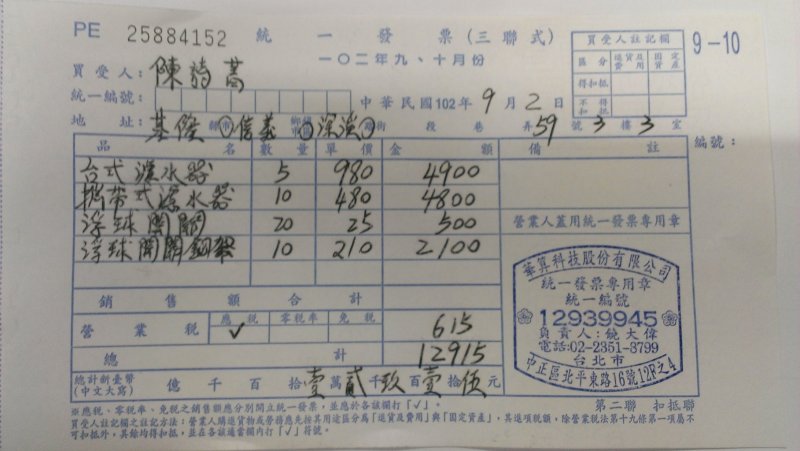 PE 25884152 統一發票(三聯式) 9-10
一〇二年九、十月份
買受人註記欄
區分 進貨及費用 固定資產
得扣抵
不得扣抵
買受人: 陳詩
統一編號:
中華民國102年9月2日
地址: 基隆 市 信義 深溪 路 街 段 巷 弄59號3樓3室
編號:
品名 數量 單價 金額 備註
台式濾水器 5 980 4900
攜帶式濾水器 10 480 4800
浮球開關 20 25 500
浮球開關鋼 10 210 2100
營業人蓋用統一發票專用章
銷售額合計
營業稅 應稅 ✓ 零稅率 免稅 615
總計 12915
總計新臺幣(中文大寫) 億 千 百 拾壹萬貳千玖百壹拾伍元
華算科技股份有限公司
統一發票專用章
統一編號
12939945
負責人:饒大偉
電話:02-2351-8799
台北市
中正區北平東路16號12F之4
第二聯 扣抵聯
※應稅、零稅率、免稅之銷售額應分別開立統一發票,並應於各該欄打「✓」。
買受人註記欄之註記方法:營業人購進貨物或勞務應先按其用途區分為「進貨及費用」與「固定資產」,其進項稅額,除營業稅法第十九條第一項屬不
可扣抵外,其餘均得扣抵,並在各該適當欄內打「✓」符號。